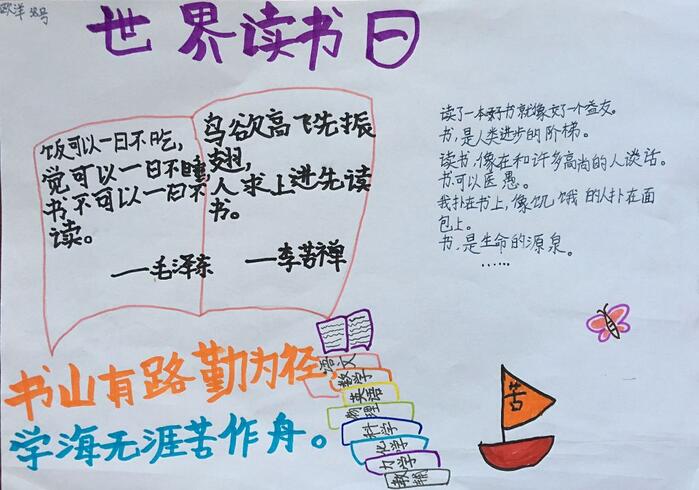 欧洋 38号
世界读书日
饭可以一日不吃，
觉可以一日不睡，
书不可以一日不
读。
——毛泽东
鸟欲高飞先振
翅，
人求上进先读
书。
——李苦禅
读了一本好书就像交了一个益友。
书，是人类进步的阶梯。
读书，像在和许多高尚的人谈话。
书可以医愚。
我扑在书上，像饥饿的人扑在面
包上。
书，是生命的源泉。
……
书山有路勤为径
学海无涯苦作舟。
语文
数学
英语
物理
科学
化学
力学
苦